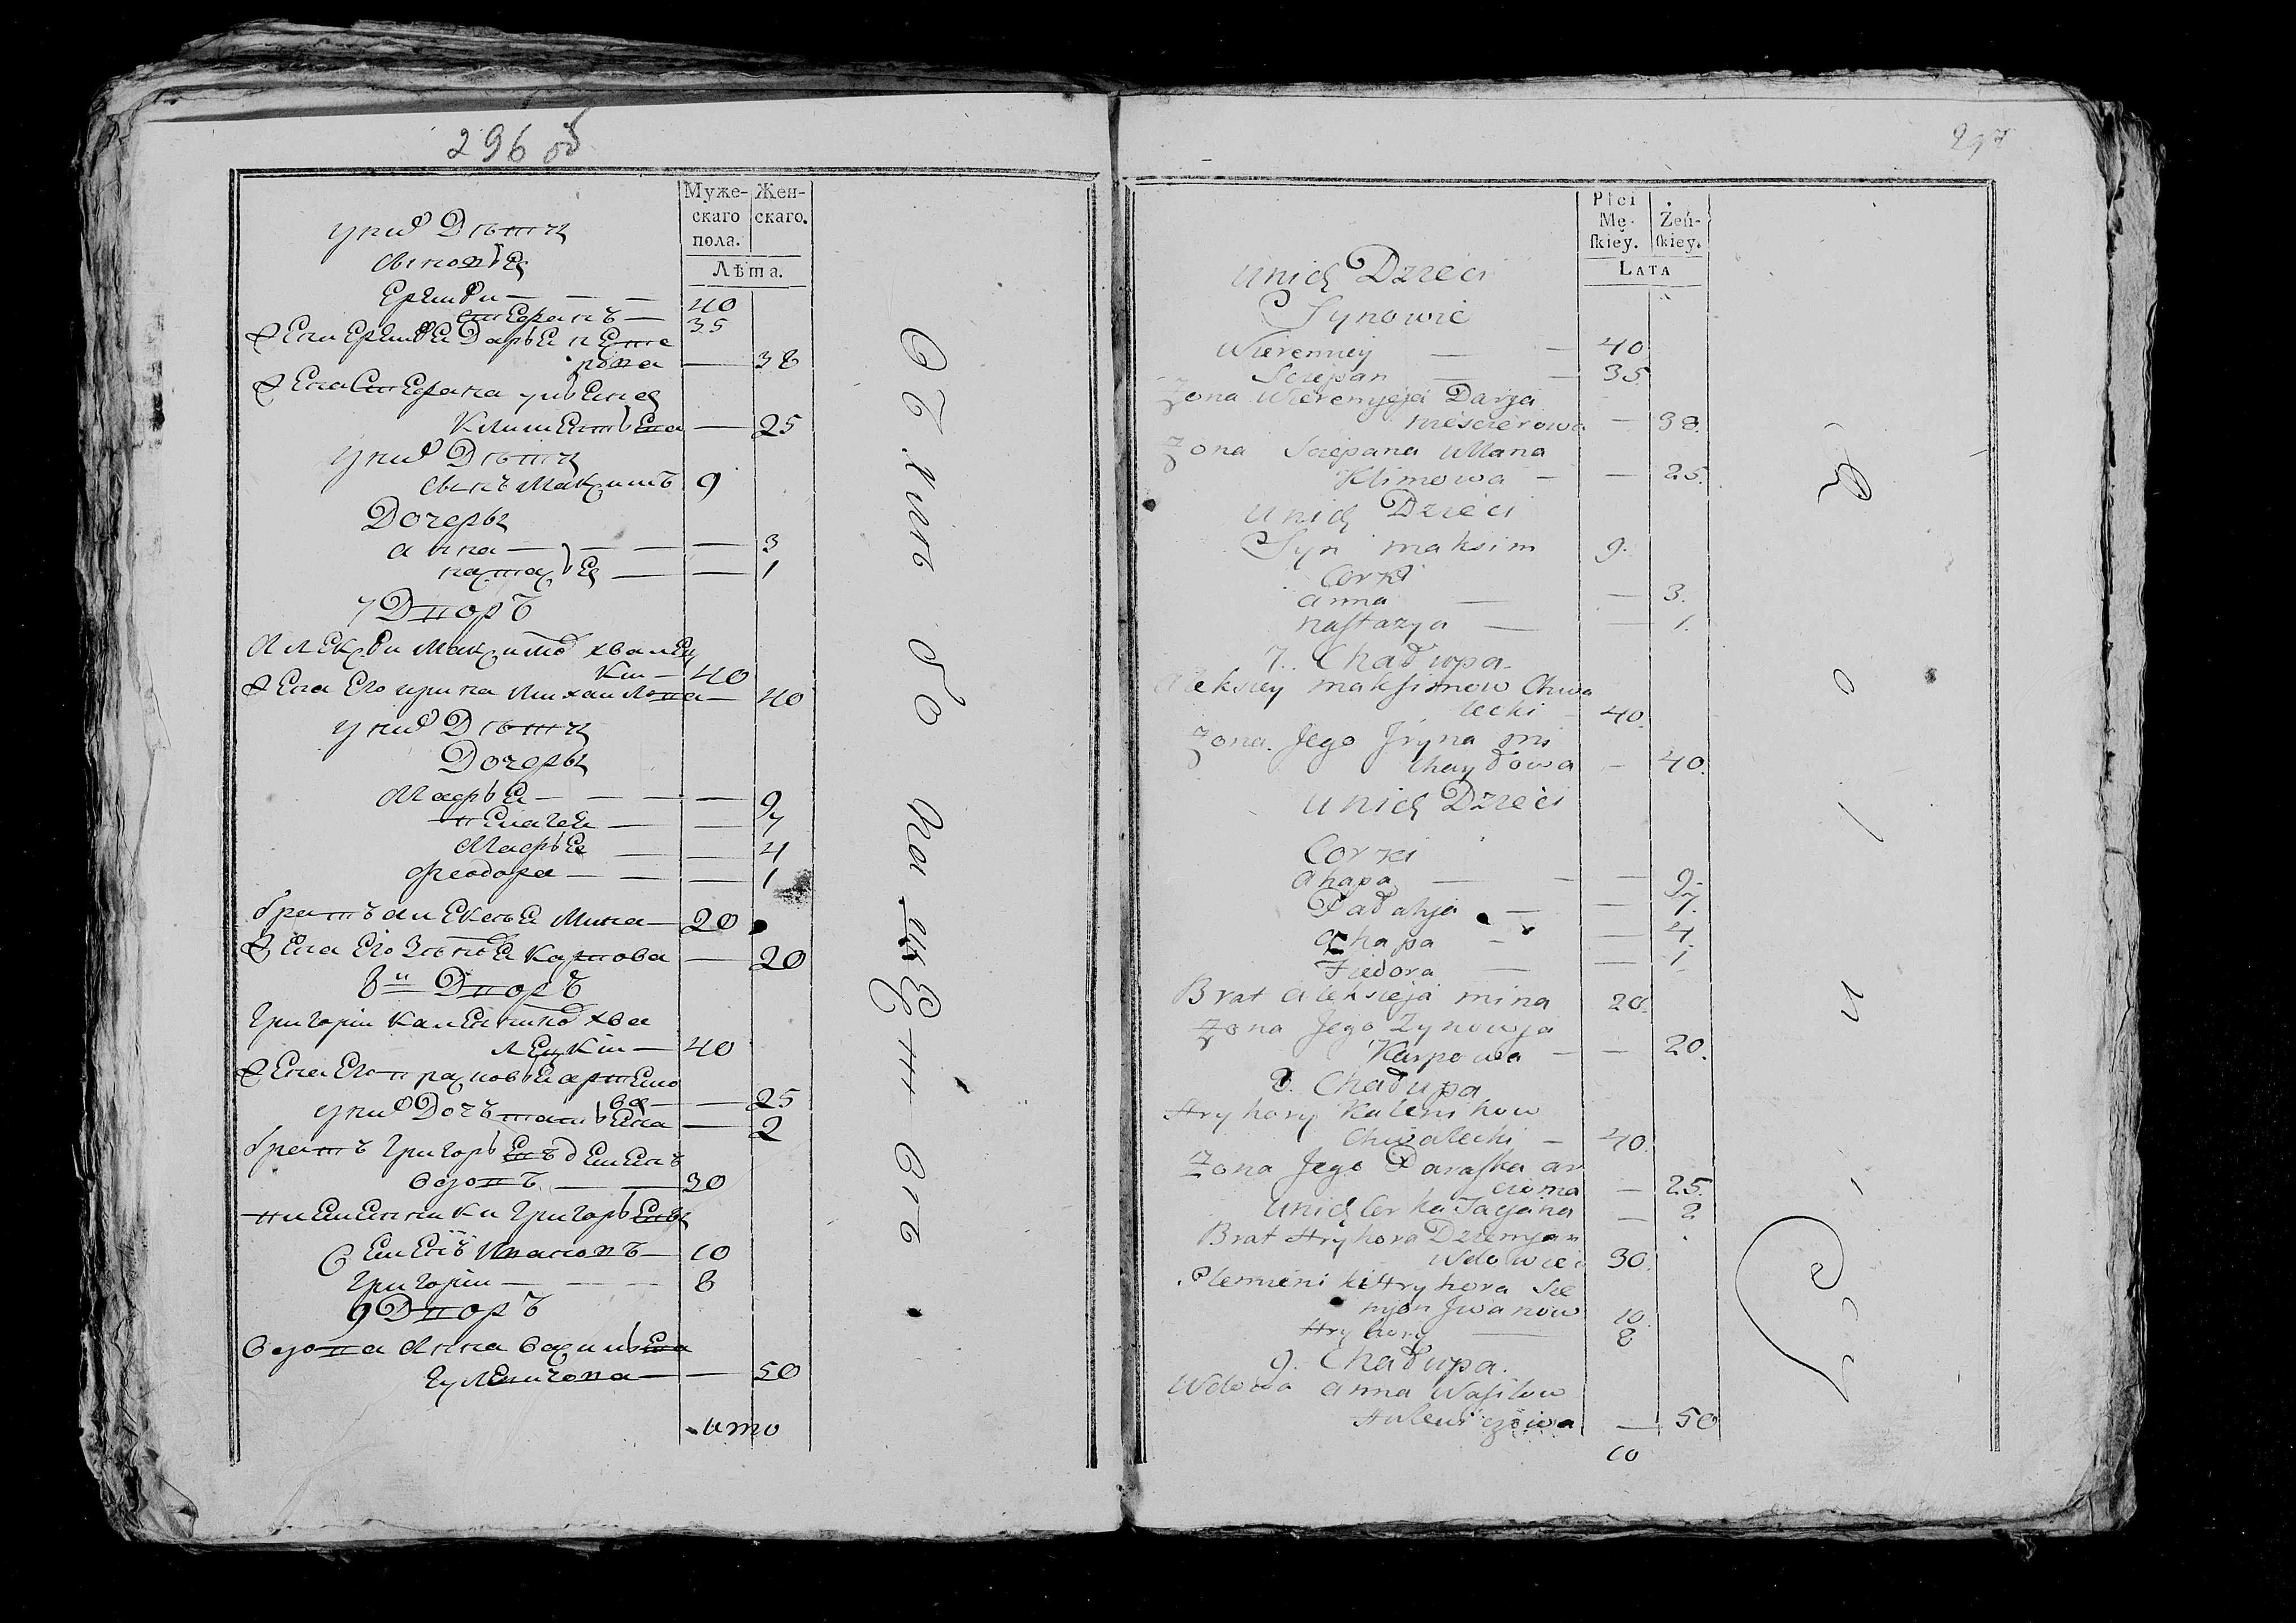 296 об
Муже-
скаго
пола.
Жен-
скаго.
Лѣта.
у нихъ Дѣти
сыновья
Еремѣи — — — 40
Степанъ — 35
Жена Еремѣя Дарья Несте
рова — 38
Жена Степана ульяна
Климентьева — 25
у нихъ Дѣти
сынъ Максимъ 9
Дочеры
анна — — — — 3
настасья — — 1
7 Дворъ
Алексѣи Максимовъ хвалец
кии — 40
Жена Его ирина Михаилова — 40
у нихъ Дѣти
Дочеры
— — — — 9
— — 7
— — 4
Феодора — — — 1
братъ алексѣя Мина — 20
Жена Его Зѣновья Карпова — 20
8й Дворъ
Григоріи Калениковъ хва
лецкіи — 40
Жена Его
ва — — 25
у нихъ Дочь татьяна — 2
братъ Григорьевъ деменъ
вдовъ — — 30
племенники Григорьевы
Семенъ Ивановъ — 10
Григоріи — — — 8
9 Дворъ
вдова Анна васильева
гулевичова — — 50
ито
297
Płci
Mę-
ſkiey.
Żeń-
ſkiey.
LATA
unich Dzieci
Synowie
Wieremiey — — 40
Sciepan — — 35
Zona Wieremjeja Darja
niescierowa — 38.
Zona Sciepana Ullana
Klimowa — — 25.
unich Dzieci
Syn maksim 9.
Corki
anna — — 3.
naſtazya — — 1.
7. Chałupa.
Aleksiey maksimow Chwa
lecki — 40.
Zona Jego Jryna mi
chayłowa — 40.
unich Dzieci
Corki
ahapa — — — 9.
Pałahja — — 7.
ahapa — — 4.
Fiedora — — 1
Brat aleksieja mina 20.
Zona Jego Zynowja
Karpowa — — 20.
8. Chałupa
Hryhory Kalenikow
Chwalecki — 40.
Zona Jego Paraſka ar
cioma — 25.
unich Corka Tacjana — 2
Brat Hryhora Dziemjan
Wdowiec 30.
Plemieniki Hryhora Sie
mjon Jwanow 10.
Hryhory — 8
9. Chałupa.
Wdowa anna Waſilow
Hulewiczowa — 50